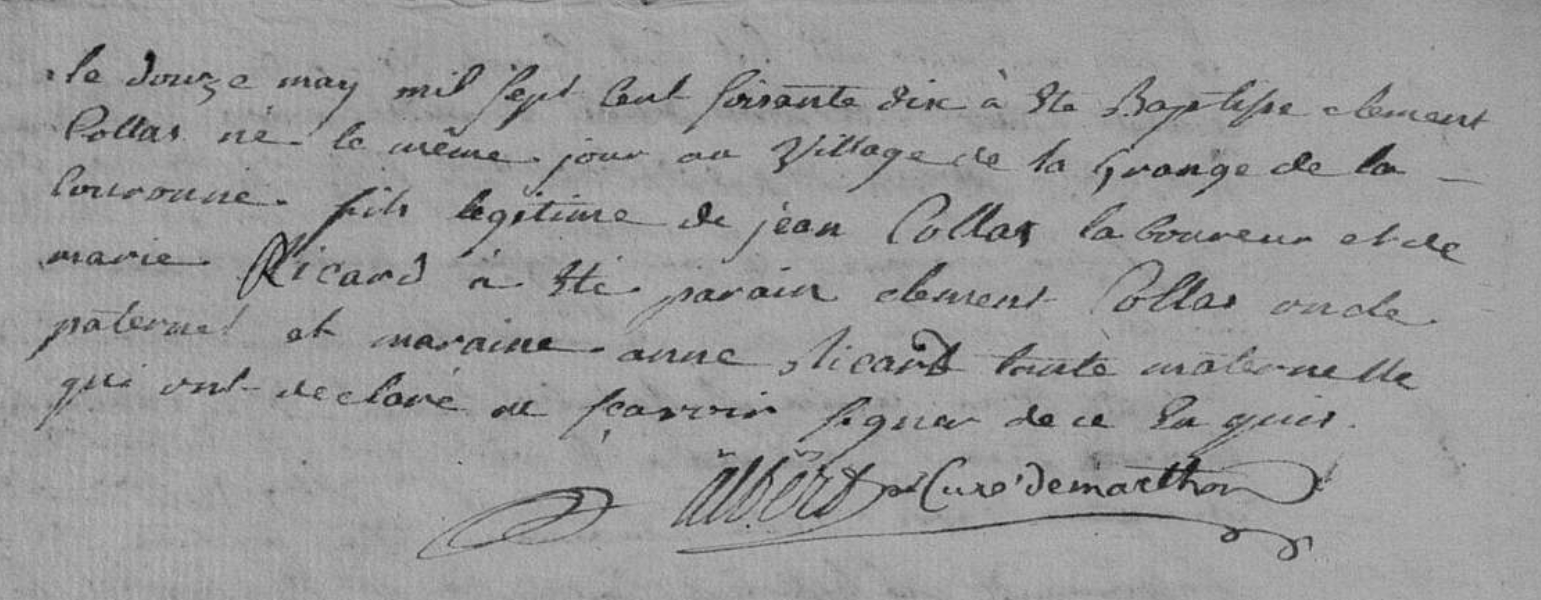 le douze may mil sept cent soisante dix à êté Baptisse clement
Collas né le même jour au Village de la Grange de la
Couronne fils legitime de jean Collas laboureur et de
marie Ricard à êté parain clement Collas oncle
paternel et maraine anne Ricard tante maternelle
qui ont declaré ne sçavoir signer de ce enquis.
albert p. Curé demarthon